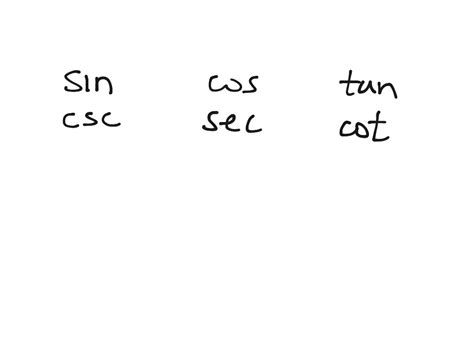 sin cos tan
csc sec cot